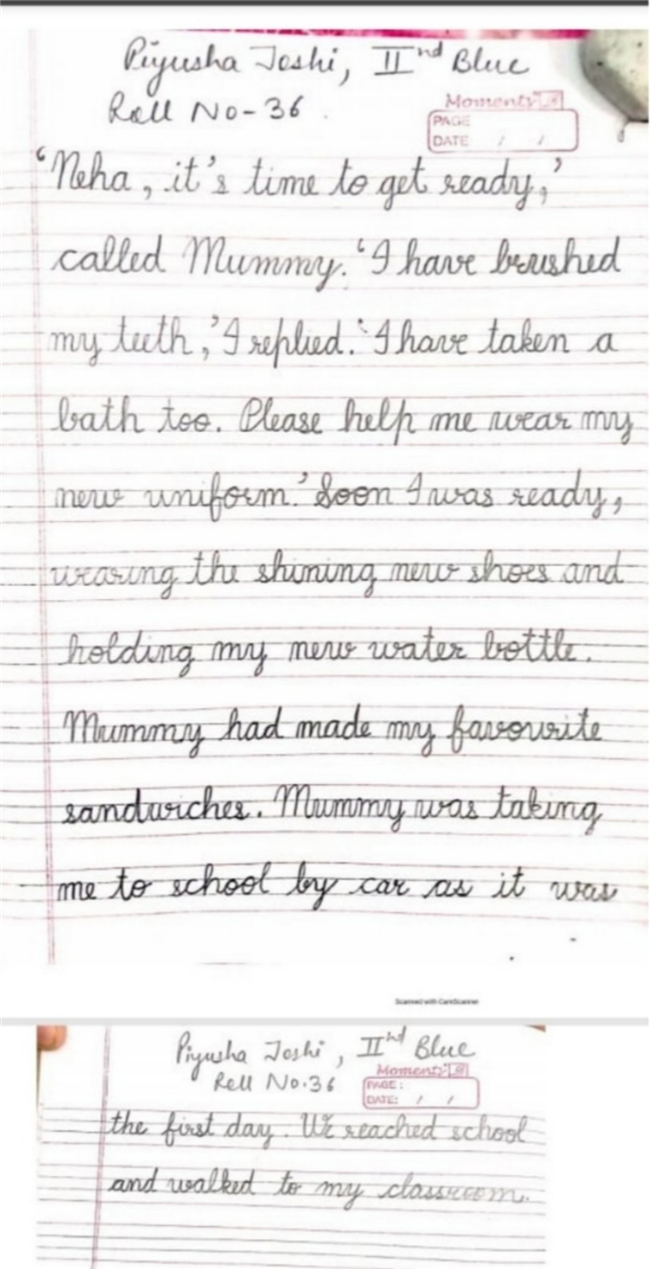 Piyusha Joshi, IInd Blue
Roll No-36.
Moments
PAGE
DATE / /
'Neha, it's time to get ready,'
called Mummy. 'I have brushed
my teeth,' I replied. 'I have taken a
bath too. Please help me wear my
new uniform.' Soon I was ready,
wearing the shining new shoes and
holding my new water bottle.
Mummy had made my favourite
sandwiches. Mummy was taking
me to school by car as it was
Scanned with CamScanner
Piyusha Joshi, IInd Blue
Roll No.36
Moments
PAGE:
DATE: / /
the first day. We reached school
and walked to my classroom.